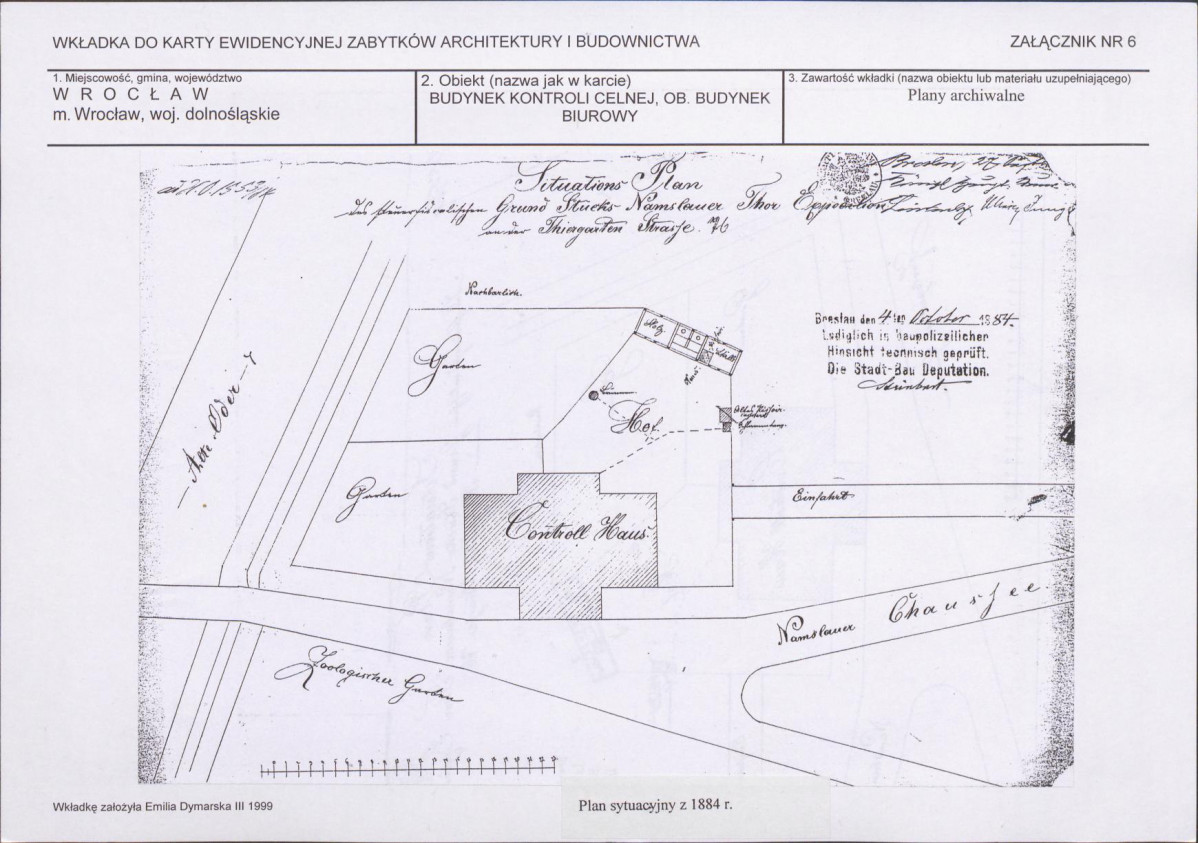 WKŁADKA DO KARTY EWIDENCYJNEJ ZABYTKÓW ARCHITEKTURY I BUDOWNICTWA
ZAŁĄCZNIK NR 6
1. Miejscowość, gmina, województwo
W R O C Ł A W
m. Wrocław, woj. dolnośląskie
2. Obiekt (nazwa jak w karcie)
BUDYNEK KONTROLI CELNEJ, OB. BUDYNEK
BIUROWY
3. Zawartość wkładki (nazwa obiektu lub materiału uzupełniającego)
Plany archiwalne
Situations Plan
des steuerfiscalischen Grund Stücks Namslauer Thor Expedition
an der Thiergarten Strasse. 76
Breslau, 27
Nachbarlich.
Breslau den 4ten October 1884.
Lediglich in baupolizeilicher
Hinsicht technisch geprüft.
Die Stadt-Bau Deputation.
Holz
Garten
Alte Oder
Brunnen
Hof.
Garten
Einfahrt
Controll Haus.
Namslauer Chaussee
Zoologischer Garten
Wkładkę założyła Emilia Dymarska III 1999
Plan sytuacyjny z 1884 r.